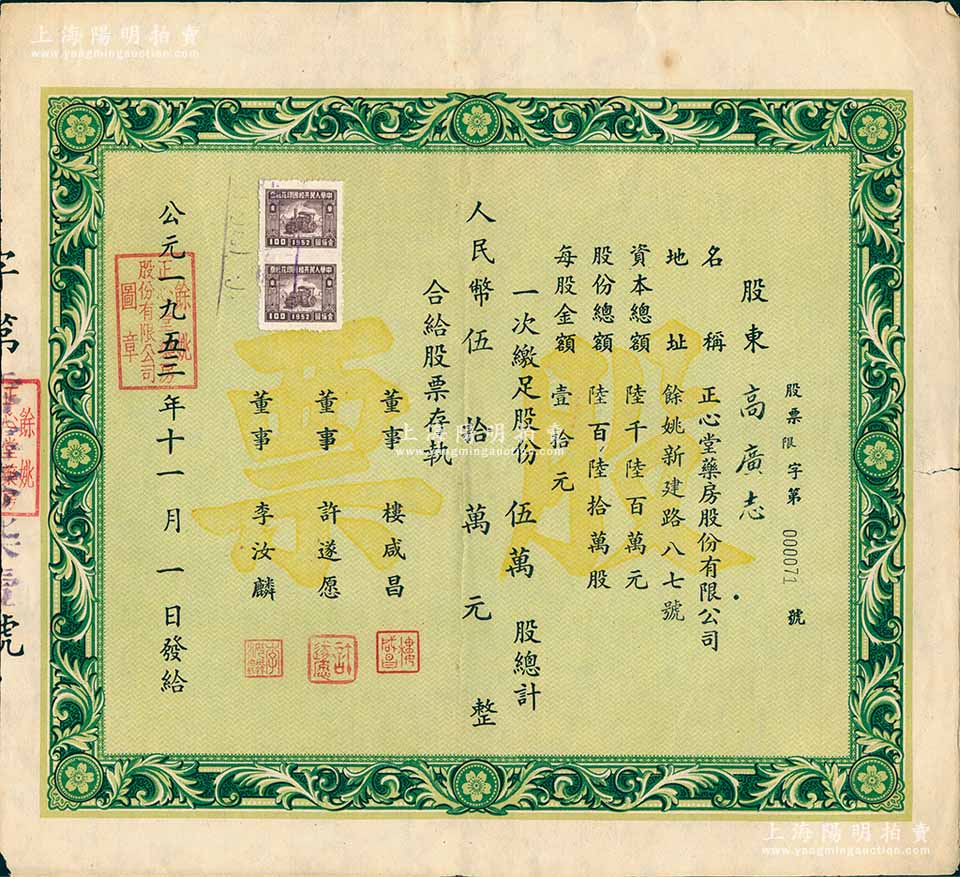 上海陽明拍賣
www.yangmingauction.com
股票
股票限字第 000071 號
股東 高廣志
名稱 正心堂藥房股份有限公司
地址 餘姚新建路八七號
資本總額 陸千陸百萬元
股份總額 陸百陸拾萬股
每股金額 壹拾元
一次繳足股份 伍萬 股總計
人民幣 伍拾萬元整
合給股票存執
董事 樓咸昌
董事 許遂愿
董事 李汝麟
公元一九五三年十一月一日發給
中華人民共和國印花稅票
100 1952
中華人民共和國印花稅票
100 1952
餘姚
正心堂藥房
股份有限公司
圖章
字第
號
餘姚
上海陽明拍賣
www.yangmingauction.com
上海陽明拍賣
www.yangmingauction.com